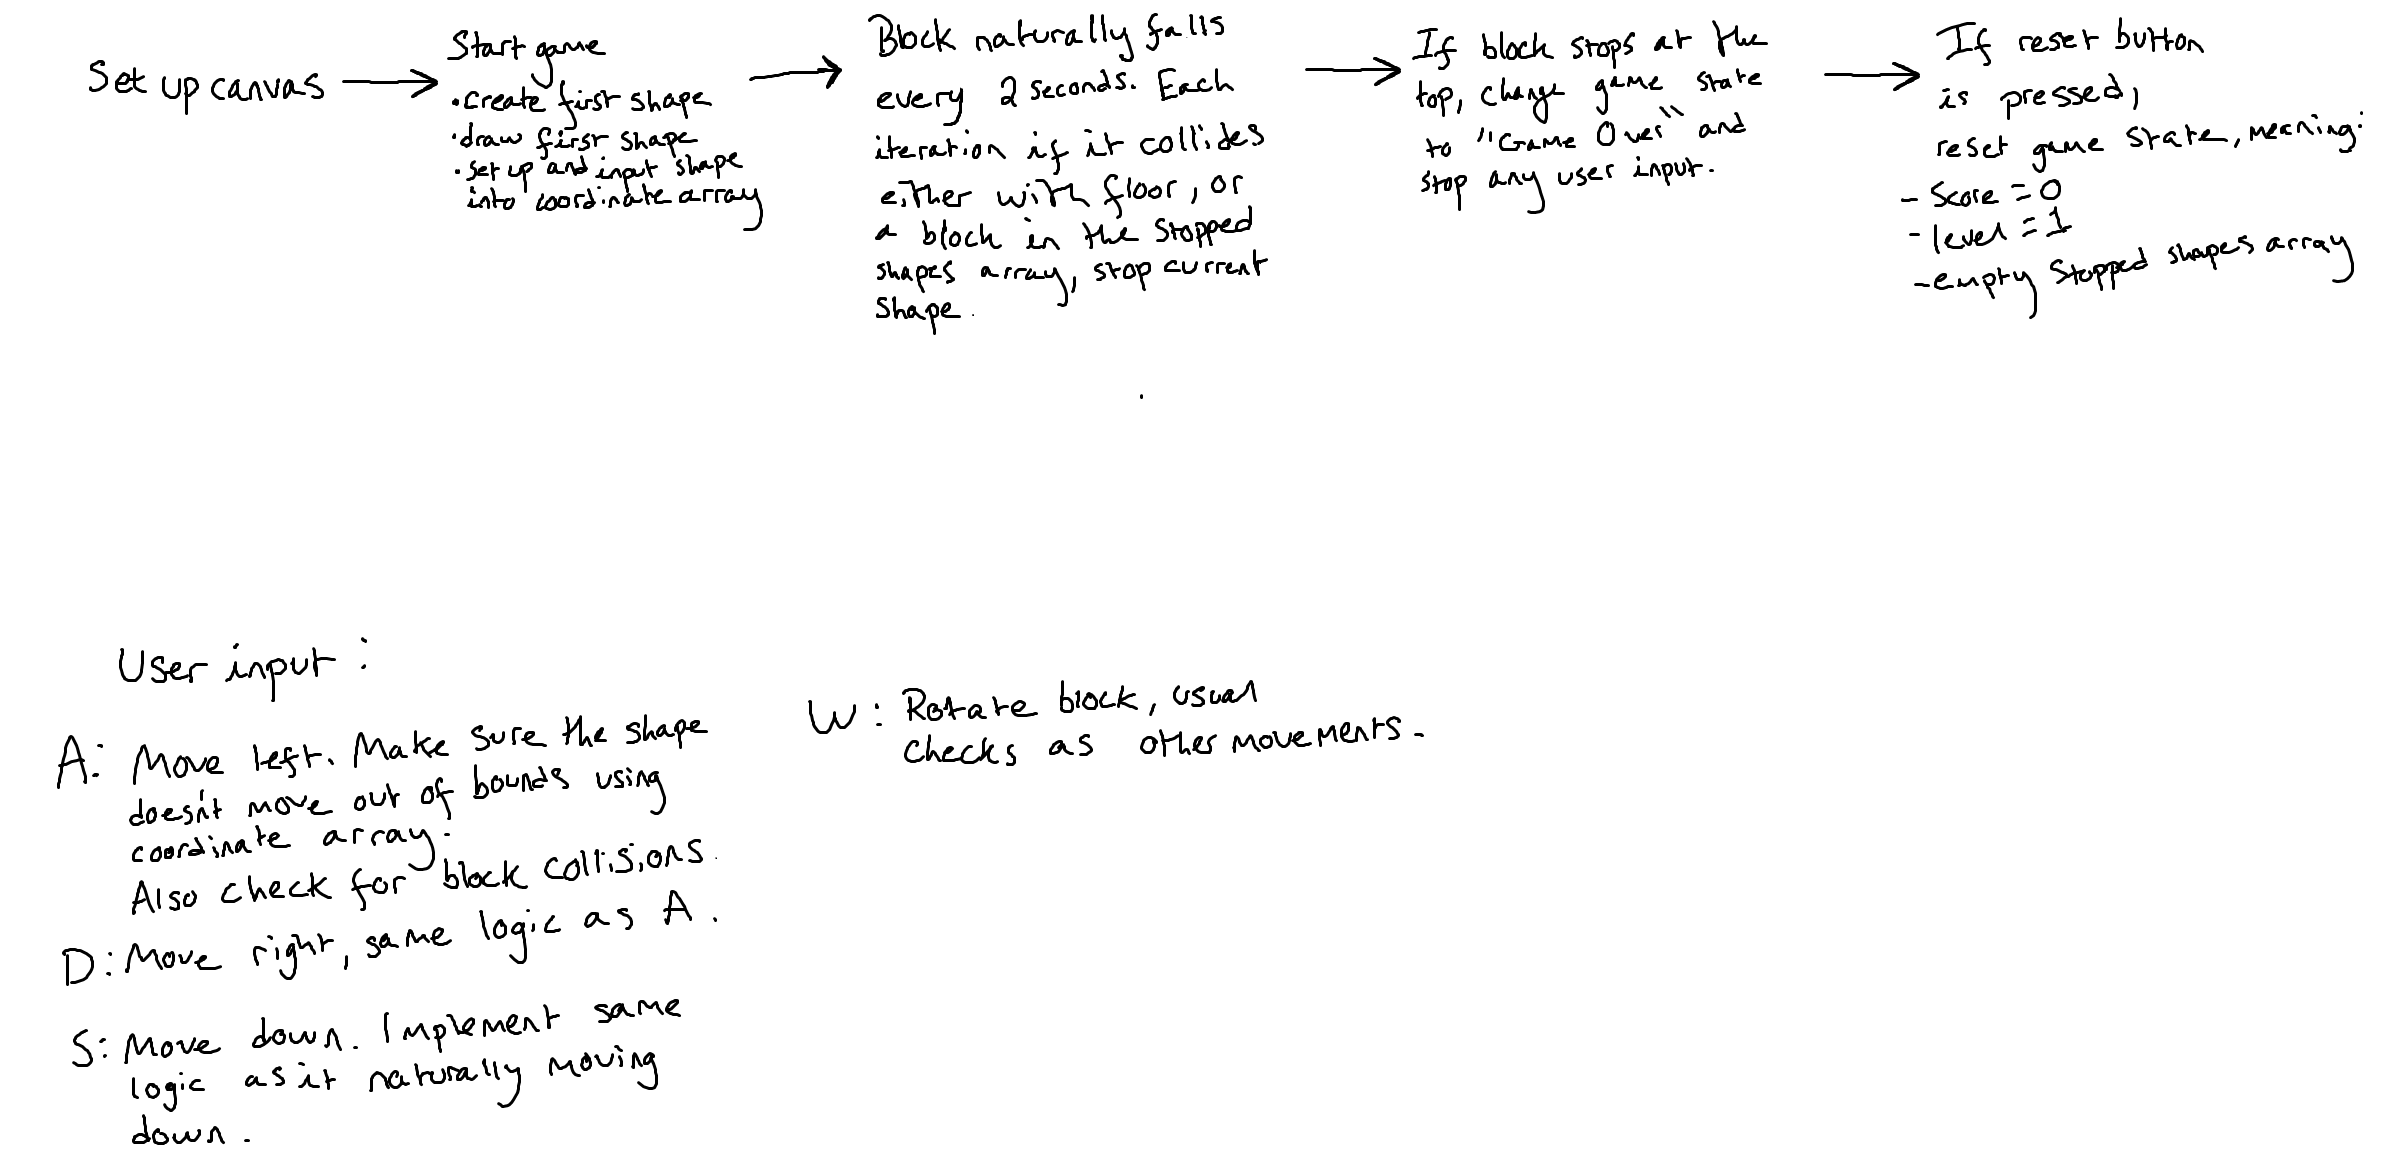 Set up canvas
Start game
• create first shape
• draw first shape
• set up and input shape
into coordinate array
Block naturally falls
every 2 seconds. Each
iteration if it collides
either with floor, or
a block in the stopped
shapes array, stop current
shape.
If block stops at the
top, change game state
to "Game Over" and
stop any user input.
If reset button
is pressed,
reset game state, meaning:
- Score = 0
- level = 1
- empty stopped shapes array
User input:
A: Move left. Make sure the shape
doesn't move out of bounds using
coordinate array.
Also check for block collisions.
D: Move right, same logic as A.
S: Move down. Implement same
logic as it naturally moving
down.
W: Rotate block, usual
checks as other movements.